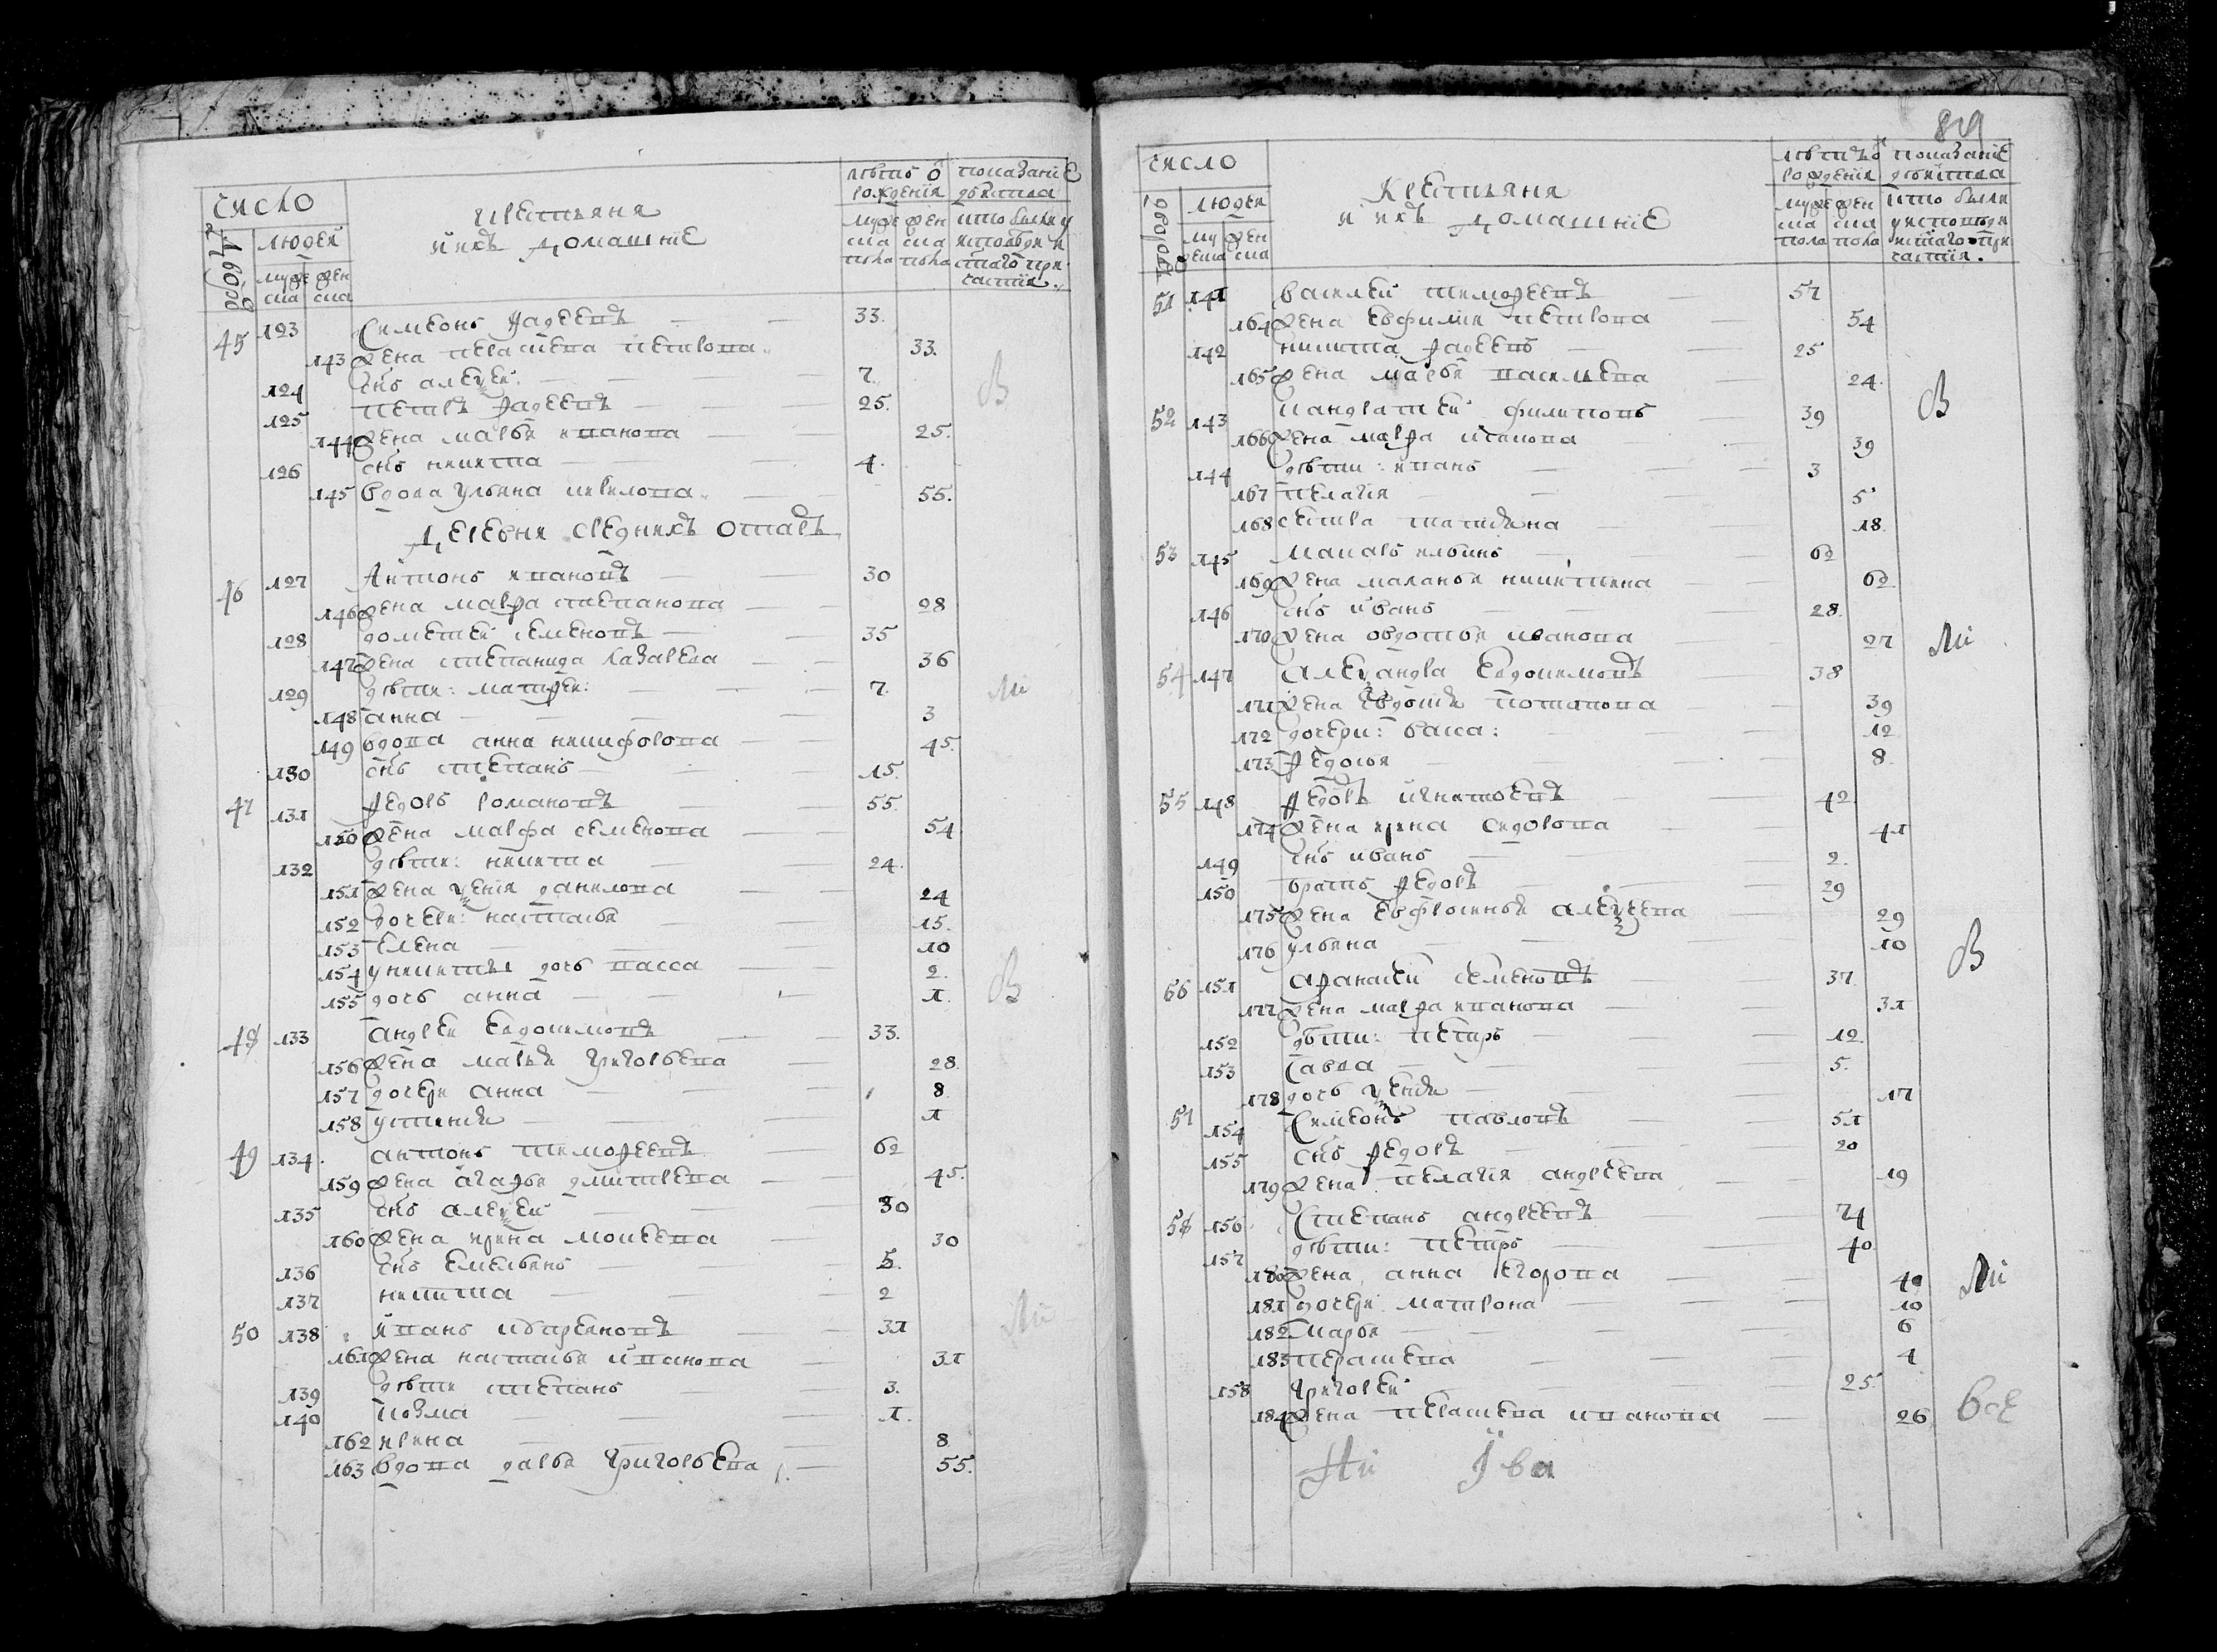 число
дворовъ
людей
мужеска
женска
крестьяня
и ихъ домашніе
лѣтъ ѿ рожденія
мужеска пола
женска пола
показаніе дѣйства
кто были у исповѣди и святаго причастія.
45 123 Симеонъ Фадеевъ 33.
143 жена параскева петрова. 33.
124 снъ алеѯей. 7.
125 петръ Фадеевъ 25.
144 жена марья иванова 25.
126 снъ никита 4.
145 вдова ульяна кирилова. 55.
Деревни средникъ отаръ
46 127 Антонъ ивановъ 30
146 жена марфа степанова 28
128 дометей семеновъ 35
147 жена степанида лазарева 36
129 дѣти: матфей: 7.
148 анна 3
149 вдова анна никифорова 45.
130 снъ степанъ 15.
47 131 Федоръ романовъ 55.
150 жена марфа семенова 54
132 дѣти: никита 24.
151 жена ѯенія данилова 24
152 дочери: настасья 15.
153 Елена 10
154 у никиты дочь васса 2.
155 дочь анна 1.
48 133 андрей Евдокимовъ 33.
156 жена марья григорьева 28.
157 дочери анна 8.
158 устинья 1
49 134. антонъ тимофеевъ 62
159 жена агафья дмитрева 45.
135 снъ алеѯей 30
160 жена ирина мокеева 30
136 снъ Емельянъ 5.
137 никита 2
50 138 иванъ 31
161 жена настасья иванова 31
139 дѣти степанъ 3.
140 козма 1.
162 ирина 8
163 вдова дарья григорьева 55.
819
число
дворовъ
людей
мужеска
женска
Крестьяня
и ихъ домашніе
лѣтъ ѿ рожденія
мужеска пола
женска пола
показаніе дѣйства
кто были у исповѣди и святаго причастія.
51 141 василей тимофеевъ 57
164 жена Евфимія петрова 54
142 никита фадеевъ 25
165 жена марья васильева 24.
52 143 кандратей филиповъ 39
166 жена марфа 39
144 дѣти: иванъ 3
167 пелагія 5
168 сестра татіяна 18.
53 145 макаръ 62
169 жена маланья никитина 62.
146 снъ иванъ 28.
170 жена овдотья иванова 27
54 147 Алеѯандра Евдокимовъ 38
171 жена Евдокія потапова 39
172 дочери: васса: 12
173 Федосья 8.
55 148 Федоръ игнатьевъ 42
174 жена ирина сидорова 41
149 снъ иванъ 2.
150 братъ Федоръ 29
175 жена Евфросинья алеѯеева 29
176 ульяна 10
66 151 афанасей семеновъ 37.
177 жена марфа иванова 31
152 дѣти: петръ 12.
153 Савва 5.
178 дочь ѯенія 17
57 154 Симеонъ павловъ 51
155 снъ федоръ 20
179 жена пелагія андреева 19
58 156 Степанъ андреевъ 74
157 дѣти: петръ 40.
180 жена анна Егорова 40
181 дочери матрона 10
182 марья 6
183 параскева 4
158 григорей 25.
184 жена параскева иванова 26
все